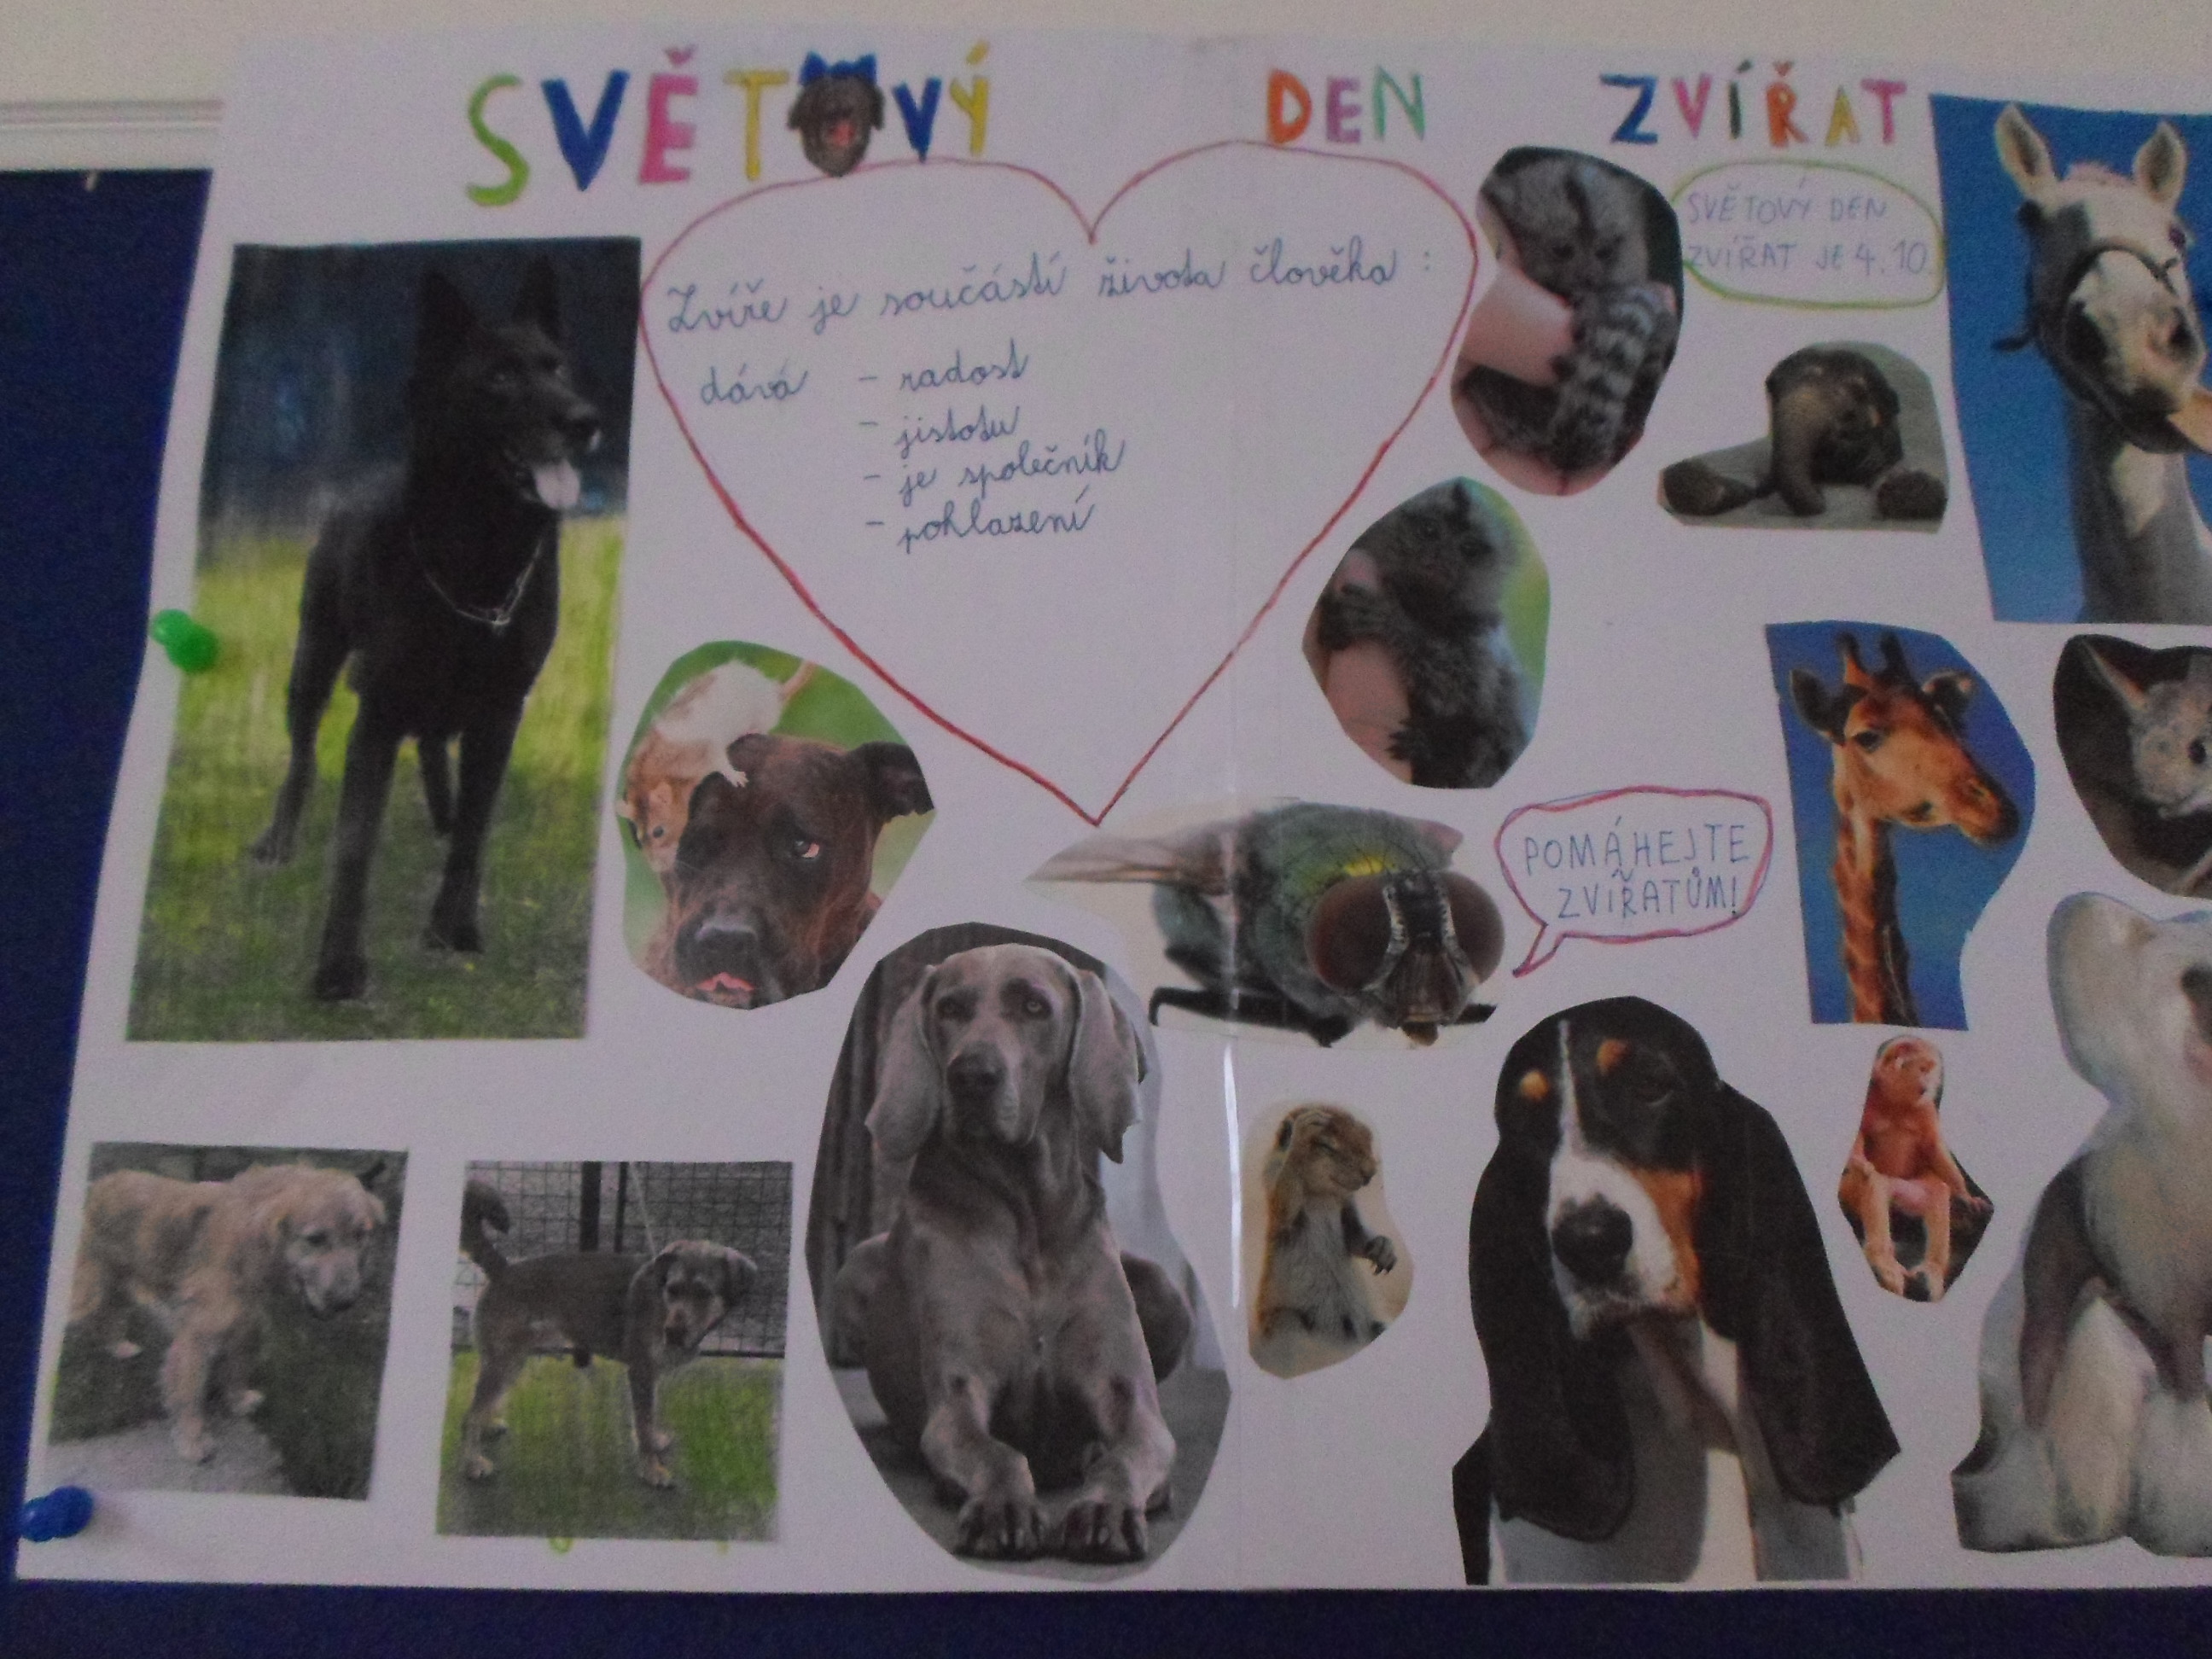 SVĚTOVÝ DEN ZVÍŘAT
Zvíře je součástí života člověka :
dává - radost
- jistotu
- je společník
- pohlazení
SVĚTOVÝ DEN
ZVÍŘAT JE 4.10.
POMÁHEJTE
ZVÍŘATŮM!